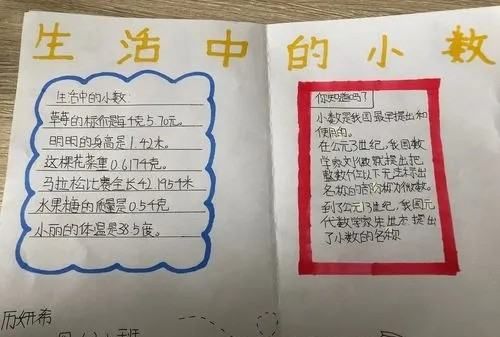 生活中的小数
生活中的小数:
草莓的标价是每千克5.70元。
明明的身高是1.42米。
这棵花茶重0.6174克。
马拉松比赛全长42.1954米
水果糖的质量是0.54克
小丽的体温是38.5度。
你知道吗?
小数是我国最早提出和
使用的。
在公元3世纪,我国数
学家刘徽就提出把
整数个位以下无法标出
名称的部分称为微数。
到了公元13世纪,我国元
代数学家朱世杰提出
了小数的名称
历妍希